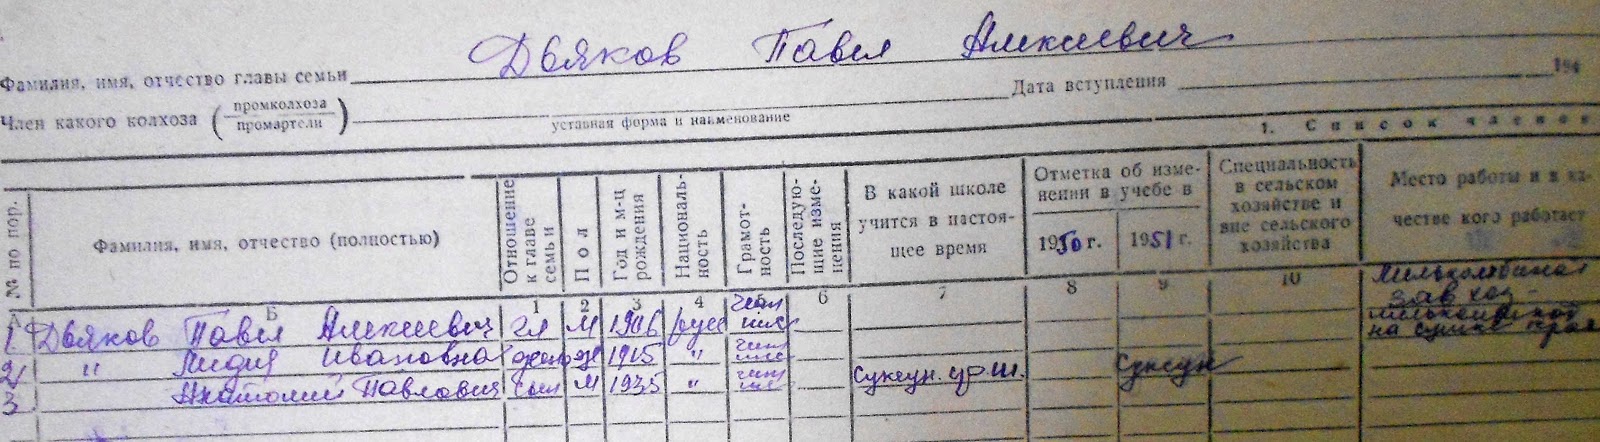 Двяков Павел Алексеевич
Фамилия, имя, отчество главы семьи
Дата вступления 194
Член какого колхоза (промколхоза / промартели)
уставная форма и наименование
1. Список членов
№ по пор. Фамилия, имя, отчество (полностью) Отношение к главе семьи Пол Год и м-ц рождения Националь-ность Грамот-ность Последую-щие изме-нения В какой школе учится в настоя-щее время Отметка об изме-нении в учебе в 1950 г. 1951 г. Специальность в сельском хозяйстве и вне сельского хозяйства Место работы и в ка-честве кого работает
А Б 1 2 3 4 5 6 7 8 9 10
1 Двяков Павел Алексеевич гл М 1906 русс
завхоз
2 " Лидия Ивановна жена ж 1915 "
Суксун
3 Анатолий Павлович сын М 1935 " Суксун. ср. ш.